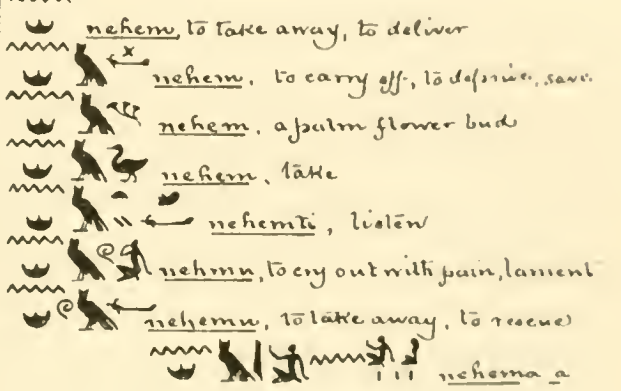 nehem, to take away, to deliver
nehem, to carry off, to deprive, save
nehem, a palm flower bud
nehem, take
nehemti, listen
nehmu, to cry out with pain, lament
nehemu, to take away, to rescue
nehema a